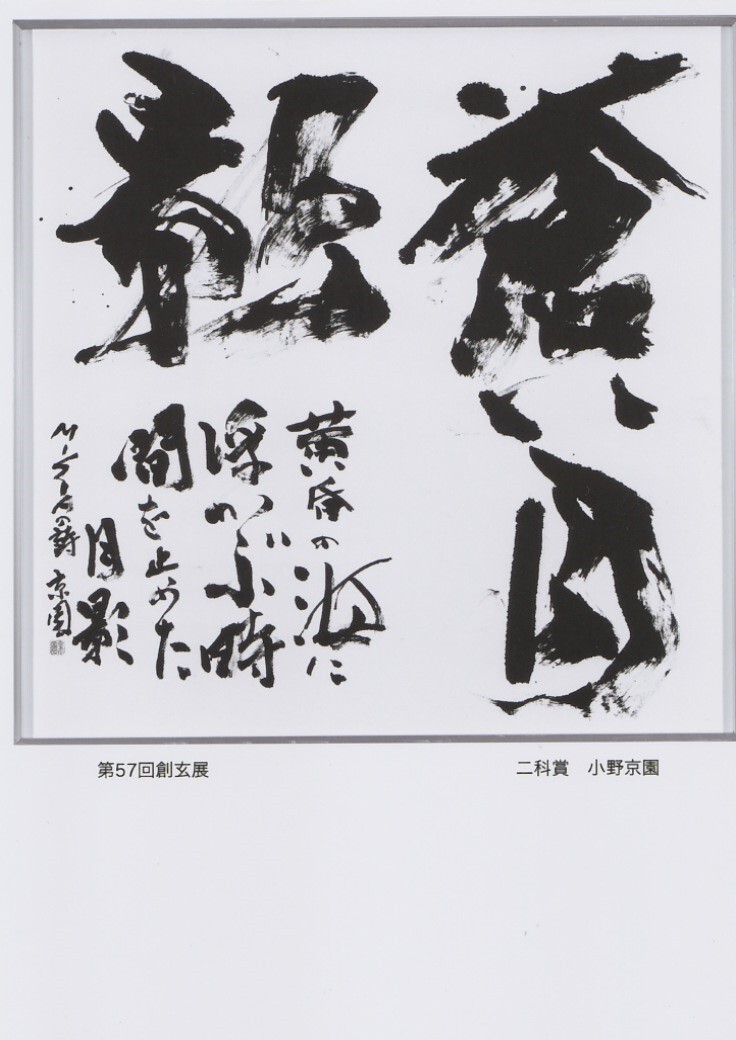 蒼い月
黄昏の海に
浮かぶ時
間を止めた
月影
の詩 京園
第57回創玄展
二科賞 小野京園